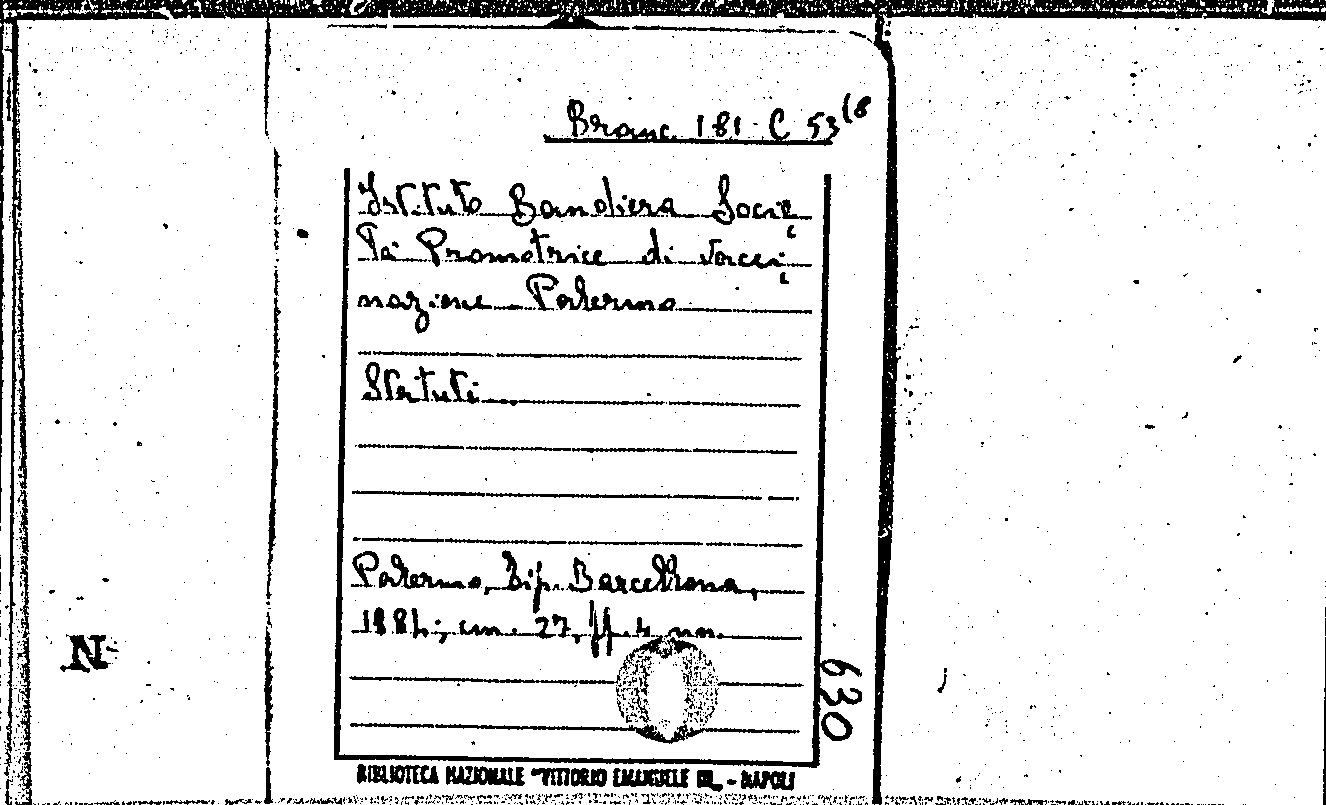 Branc. 181 C 53(8
Istituto Bandiera Socie
tà Promotrice di vacci
nazione Palermo
Statuti
Palermo, Tip. Barcellona,
1884; cm. 27, ff. 4 nn.
630
N
BIBLIOTECA NAZIONALE "VITTORIO EMANUELE III" - NAPOLI